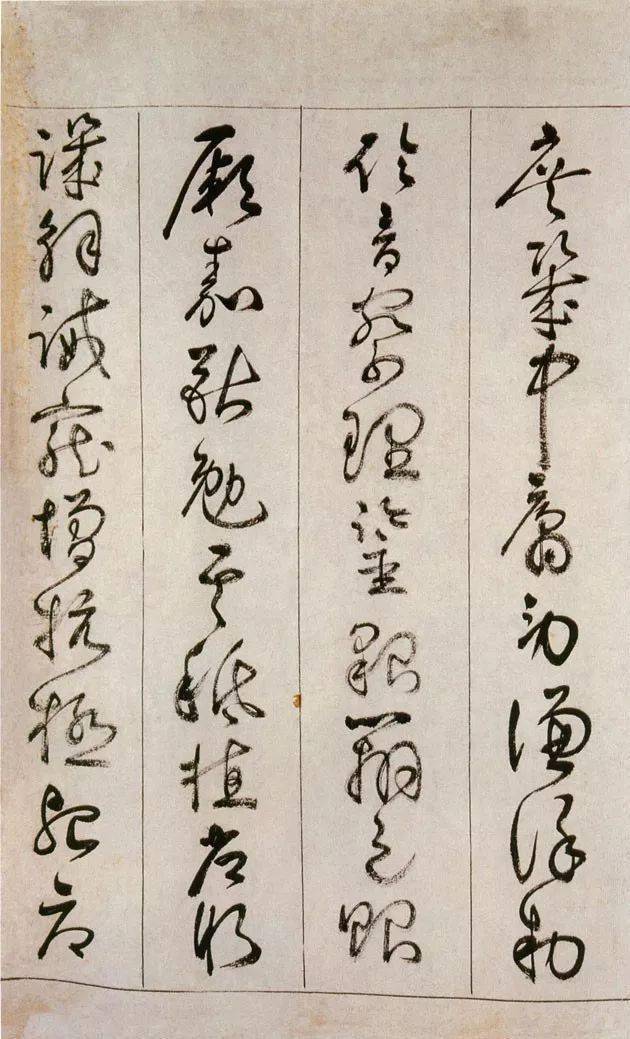 庶幾中庸勞謙謹勅
聆音察理鑒貌辯色貽
厥嘉猷勉其祗植省躬
譏誡寵增抗極殆辱